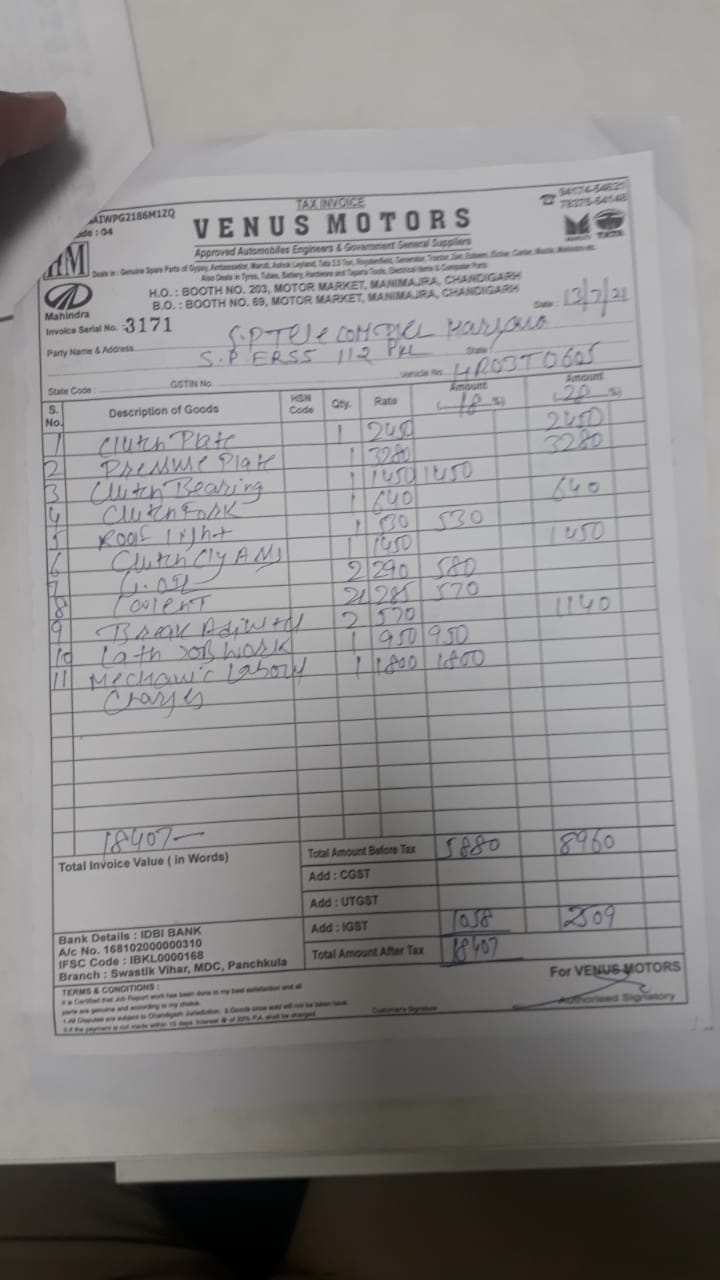 TAX INVOICE
AIWPG2186M1ZQ
de : 04
94174-54821
78375-54148
VENUS MOTORS
Approved Automobiles Engineers & Government General Suppliers
Deals in : Genuine Spare Parts of Gypsy, Ambassador, Maruti, Ashok Leyland, Tata
Also Deals in Tyres, Tubes, Battery, Hardware and Taparia Tools, Electrical Items & Computer Parts
H.O. : BOOTH NO. 203, MOTOR MARKET, MANIMAJRA, CHANDIGARH
B.O. : BOOTH NO. 59, MOTOR MARKET, MANIMAJRA, CHANDIGARH
Mahindra
MARUTI TATA
Invoice Serial No. : 3171
Date : 13/7/21
Party Name & Address S.P Tele COM PKL Haryana
S.P ERSS 112 PKL State
State Code : GSTIN No. Vehicle No. HR03T0605
S. No. Description of Goods HSN Code Qty. Rate Amount (18 %) Amount (28 %)
1 Clutch Plate 1 2450 2450
2 Pressure Plate 1 3280 3280
3 Clutch Bearing 1 1450 1450
4 Clutch Fork 1 640 640
5 Roof light 1 530 530
6 Clutch Cly 1 1450 1450
7 G.oil 2 290 580
8 Coolent 2 285 570
9 Break 2 570 1140
10 Lath JOB WORK 1 950 950
11 Mechanic Labour 1 1800 1800
Charges
18407—
Total Invoice Value ( in Words)
Total Amount Before Tax 5880 8960
Add : CGST
Add : UTGST
Add : IGST 1058 2509
Total Amount After Tax 18407
Bank Details : IDBI BANK
A/c No. 168102000000310
IFSC Code : IBKL0000168
Branch : Swastik Vihar, MDC, Panchkula
For VENUS MOTORS
Authorised Signatory
TERMS & CONDITIONS :
It is Certified that Job Report work has been done to my best satisfaction and all
parts are genuine and according to my choice.
1.All Disputes are subject to Chandigarh Jurisdiction. 2.Goods once sold will not be taken back.
3.If the payment is not made within 15 days. Interest @ of 22% P.A. shall be charged.
Customer's Signature